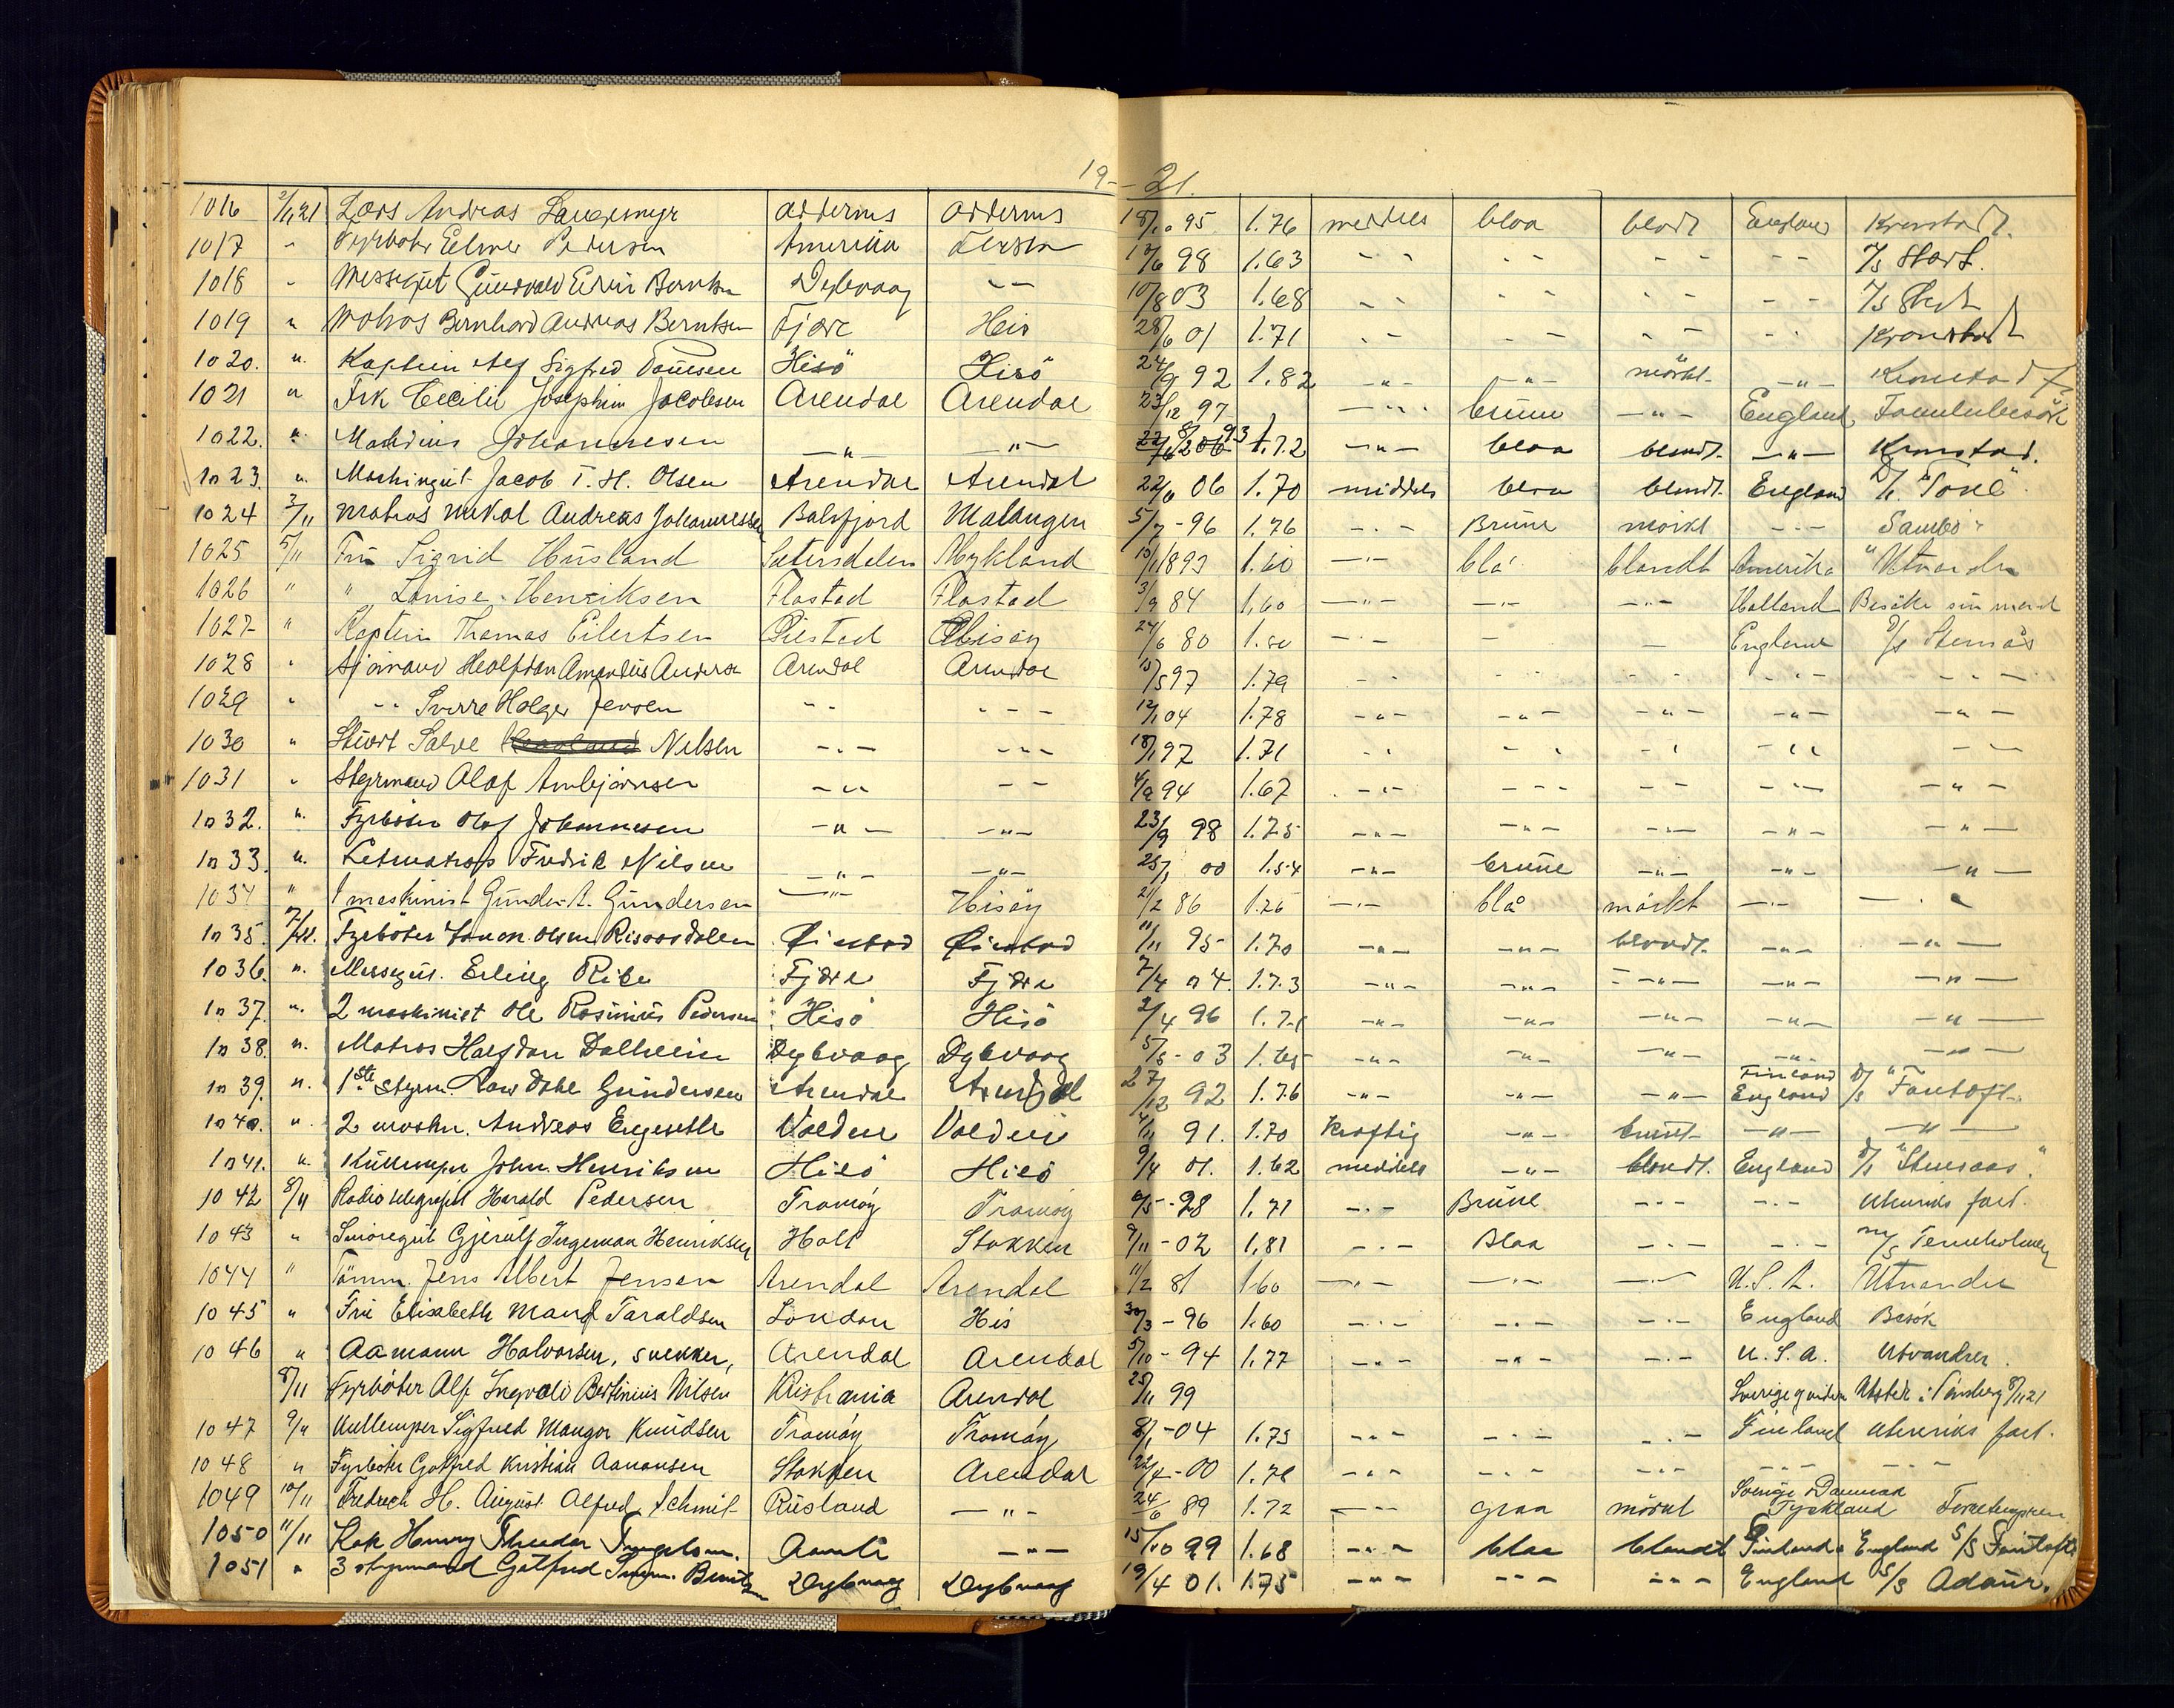 19-- 21.
1016 2/11 21 Lars Andreas Langemyr Oddernes Oddernes 18/10 95 1.76 meddels blaa blodt England Kronstadt.
1017 " Fyrbøter Elmer Pedersen Amerika 12/6 98 1.63 - - - - - - - - 7/s Start.
1018 " Messegut Gundvald Berntsen Dybvaag - - 10/8 03 1.68 - - - - - - - - 7/s
1019 " Matros Bernhard Andreas Berntsen Fjære His 28/6 01 1.71 - - - - - - - - Kronstadt
1020. " Kaptein Alf Sigfred Hisö Hisö 24/9 92 1.82 -"- -"- mörkt -"- Kronstadt
1021 " Frk Cecilie Josephine Jacobsen Arendal Arendal 23/12 97 -"- brune -"- England Familiebesök
1022. " Johannesen -"- -"- 93 1.72 -"- blaa blondt. -"- Kronstad.
1023. " Maskingut Jacob T. H. Olsen Arendal Arendal 22/6 06 1.70 middels blaa blondt. England
1024 3/11 Matros Nikal Andreas Johannessen Balsfjord Malangen 5/7 - 96 1.76 -"- Brune mörkt -"- Sambo
1025 5/11 Fru Sigrid Husland Setersdalen Mykland 10/1 1893 1.60 -"- blå blondt Amerika Utvandre
1026 " " Lovise Henriksen Flostad Flostad 3/9 84 1.60 -"- -"- -"- Holland Besöke sin mand
1027 " Kaptein Thomas Eilertsen Øiestad Hisöy 24/6 80 1.80 -"- - - England D/s Stensås
1028 " Sjömand Halfdan Amandus Anderse Arendal Arendal 10/5 97 1.79 - - - - - - - - - -
1029 " -"- Sverre Holger Jensen - - - - - 12/1 04 1.78 -"- -"- -"- -"- -"-
1030 " Stuert Salve Nilsen -"- -"- 18/1 97 1.71 - - - - - - - - - -
1031 " Styrmand Olaf Arnbjørnsen -"- - - 4/9 94 1.67 -"- - - - - - -"- -"-
1032. " Fyrböter Olaf Johannesen -"- -"- 23/9 98 1.75 -"- -"- -"- -"- -"-
1033. " Letmatros Fredrik Nilsen -"- -"- 25/1 00 1.54 -"- brune -"- -"- -"-
1034 " 1 maskinist Gunder A. Gundersen -"- Hisöy 21/2 86 1.76 -"- blå mörkt -"- -"-
1035. 7/11. Fyrböter Olsen Risaasdalen Øiestad Øiestad 11/11 95 1.70 -"- -"- blondt. -"- -"-
1036. " Messegut. Erling Ribe Fjære Fjære 7/4 04. 1.73 -"- -"- -"- -"- -"-
1037. " 2 maskinist Ole Rosinius Pedersen Hisö Hisö 2/4 96 1.71 -"- -"- -"- -"- -"-
1038. " Matros Halfdan Dalheim Dybvaag Dybvaag 5/5 - 03 1.65 -"- -"- -"- -"- -"-
1039. " 1ste styrm. Gundersen Arendal Arendal 27/12 92 1.76 -"- -"- -"- Finland England D/s "Fantoft.
1040. " 2 maskn. Andreas Engeseth Volden Volden 4/11 91. 1.70 Kraftig -"- brunt -"- -"-
1041. " Kullemper John. Henriksen Hisö Hisö 9/4 01. 1.62 meddels -"- blondt. England D/s "Stensaas."
1042 8/11 Radiotelegrafist Harald Pedersen Tromöy Tromöy 6/5 - 98 1.71 -"- Brune -"- -"- Utenriks fart.
1043 " Smöregut Gjerulf Ingeman Henriksen Holt Stokken 9/11 - 02 1.81 -"- Blaa -"- -"- M/s Ternholmen
1044 " Tömm. Jens Albert Jensen Arendal Arendal 11/2 81 1.60 -"- -"- -"- U.S.A. Utvandre
1045 " Fru Elisabeth Maud Taraldsen London His 30/3 - 96 1.60 -"- -"- -"- England Besök
1046 " Aamann Halvorsen, snekker, Arendal Arendal 5/10 - 94 1.77 -"- -"- -"- U.S.A. Utvandrer.
8/11 Fyrböter Alf Ingvald Bertinius Nilsen Kristiania Arendal 25/11 99 Sverige Utsted i Tönsberg 8/11 21
1047 9/11 Kullemper Sigfred Mangor Knudsen Tromöy Tromöy 8/1 - 04 1.75 -"- -"- -"- Finland Utenriks fart.
1048 " Fyrböter Gotfred Kristian Aanonsen Stokken Arendal 22/4 - 00 1.78 -"- -"- -"- -"- -"-
1049 10/11 Fredrech H. August Alfred Schmit Rusland -"- 24/6 89 1.72 -"- graa mörkt Sverige Danmark Tyskland
1050 11/11 Kok Henry Theodor Aamli -"- 15/10 99 1.68 -"- blaa blondt Finland & England S/S Fantoft.
1051 " 3 styrmand Gotfred Dybvaag Dybvaag 19/4 01. 1.75 -"- -"- -"- England S/S Adour.